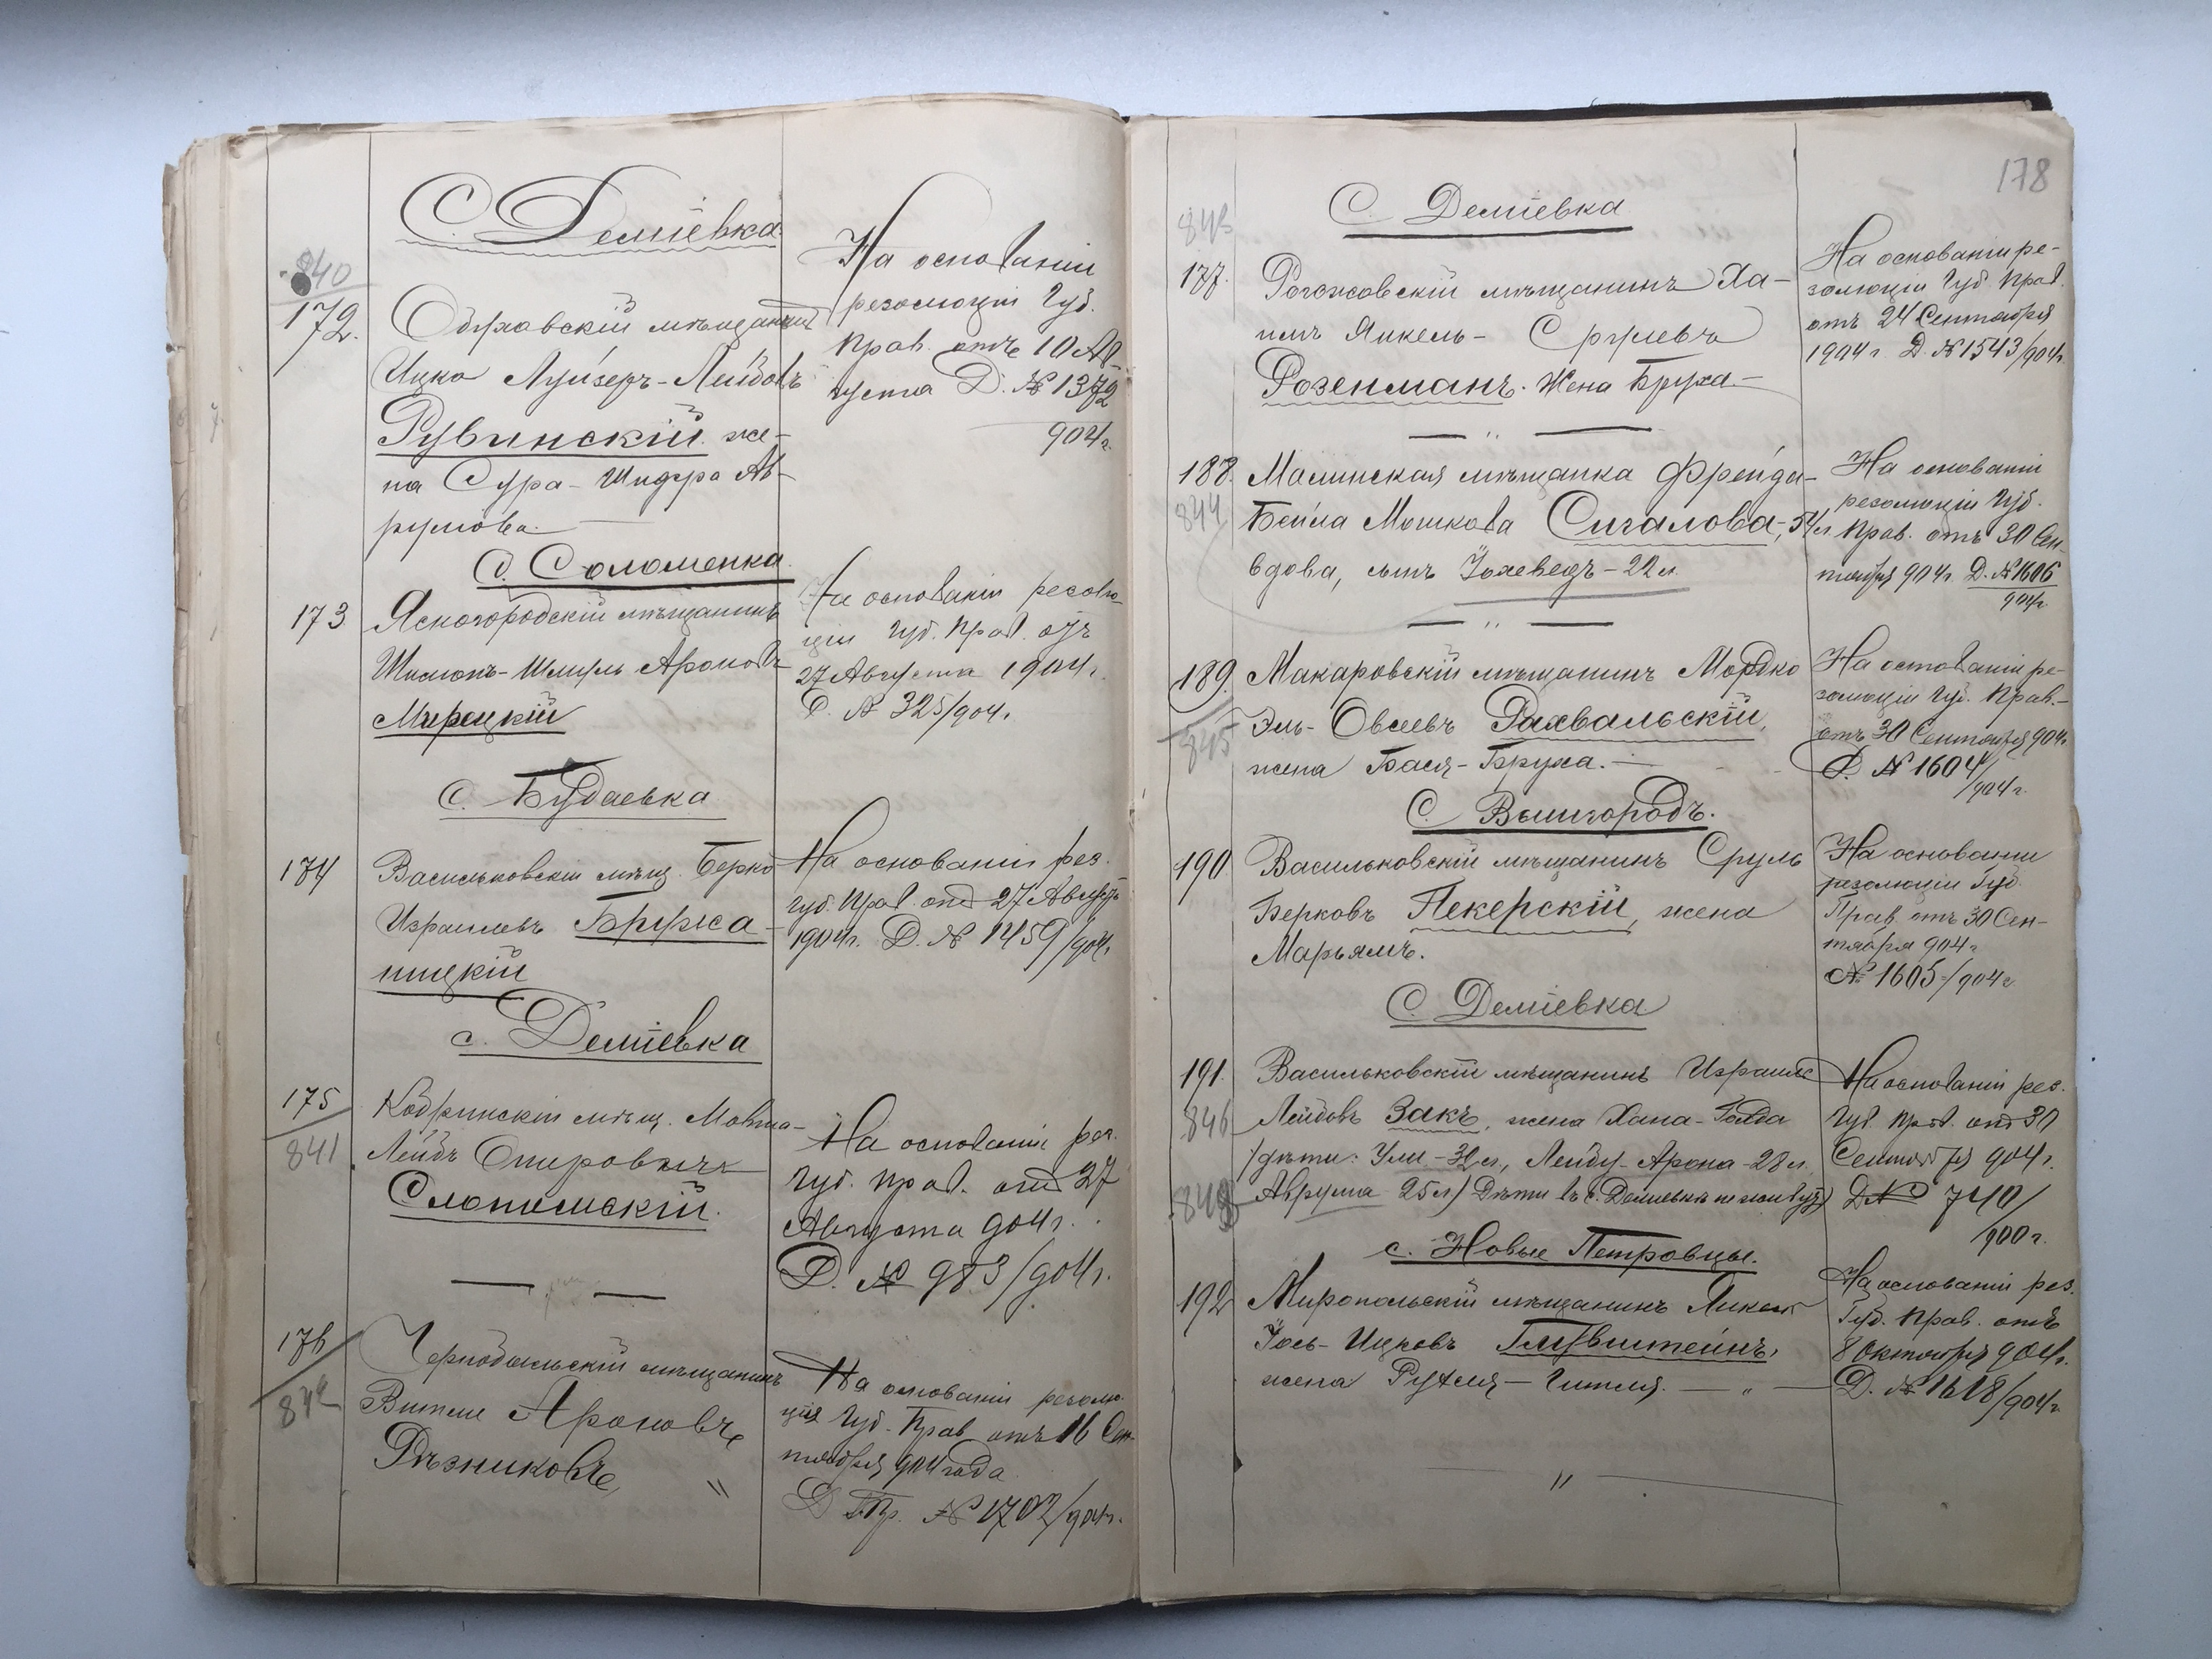 С. Деміевка
840
172.
Обуховскій мѣщанинъ
Ицко Лузеръ-Лейбовъ
Рувинскій. же-
на Сура-Шифра Ав-
румова.
На основаніи
резолюціи Губ.
Прав. отъ 10 Ав-
густа Д. № 1372
904 г.
С. Соломенка
173
Ясногородскій мѣщанинъ
Шимонъ-Шмуль Ароновъ
Мирецкій
На основаніи резолю-
ціи Губ. Прав. отъ
27 Августа 1904 г.
Д. № 325/904 г.
С. Будаевка
174
Васильковскій мѣщ. Берко
Израилевъ Бруса-
ницкій
На основаніи рез.
Губ. Прав. отъ 27 Августа
1904 г. Д. № 1459/904 г.
с. Деміевка
175
841
Кобринскій мѣщ. Мовша-
Лейбъ
Слонимскій.
На основаніи рез.
Губ. Прав. отъ 27
Августа 904 г.
Д. № 983/904 г.
176
842
Чернобыльскій мѣщанинъ
Вигдоръ Ароновъ
Рѣзниковъ "
На основаніи резолю-
ціи Губ. Прав. отъ 16 Сен-
тября 904 года
Д. № 1702/904 г.
178
С. Деміевка
843
177.
Рогожовскій мѣщанинъ Ха-
имъ Янкель-Срулевъ
Розенманъ. Жена Бруха.—
На основаніи ре-
золюціи Губ. Прав.
отъ 24 Сентября
1904 г. Д. № 1543/904 г.
188.
844
Малинская мѣщанка Фрейда-
Бейла Мошкова Сигалова, 54 л.
вдова, сынъ - 22 л.
На основаніи
резолюціи Губ.
Прав. отъ 30 Сен-
тября 904 г. Д. № 1606
904 г.
189.
845
Макаровскій мѣщанинъ Мордко
Эль-Овсеевъ Рахвальскій,
жена Бася-Бруха.—
На основаніи ре-
золюціи Губ. Прав.-
отъ 30 Сентября 904 г.
Д. № 1604/904 г.
С. Вышгородъ.
190
Васильковскій мѣщанинъ Сруль
Берковъ Пекерскій, жена
Марьямъ.
На основаніи
резолюціи Губ.
Прав. отъ 30 Сен-
тября 904 г.
№ 1605/904 г.
С. Деміевка
191.
846
Васильковскій мѣщанинъ Израиль
Лейбовъ Закъ, жена Хана-Голда
/дѣти: Ули - 32 л., Лейбу-Арона - 28 л.,
Аврума 25 л/ Дѣти въ с. Деміевкѣ не живутъ)
848
На основаніи рез.
Губ. Прав. отъ 30
Сентября 904 г.
Д № 740/
900 г.
с. Новые Петровцы.
192
Миропольскій мѣщанинъ
Іось-Ицковъ Глувштейнъ,
жена Рухля-Гитля. — " —
На основаніи рез.
Губ. Прав. отъ
8 Октября 904 г.
Д. № 1618/904 г.
"